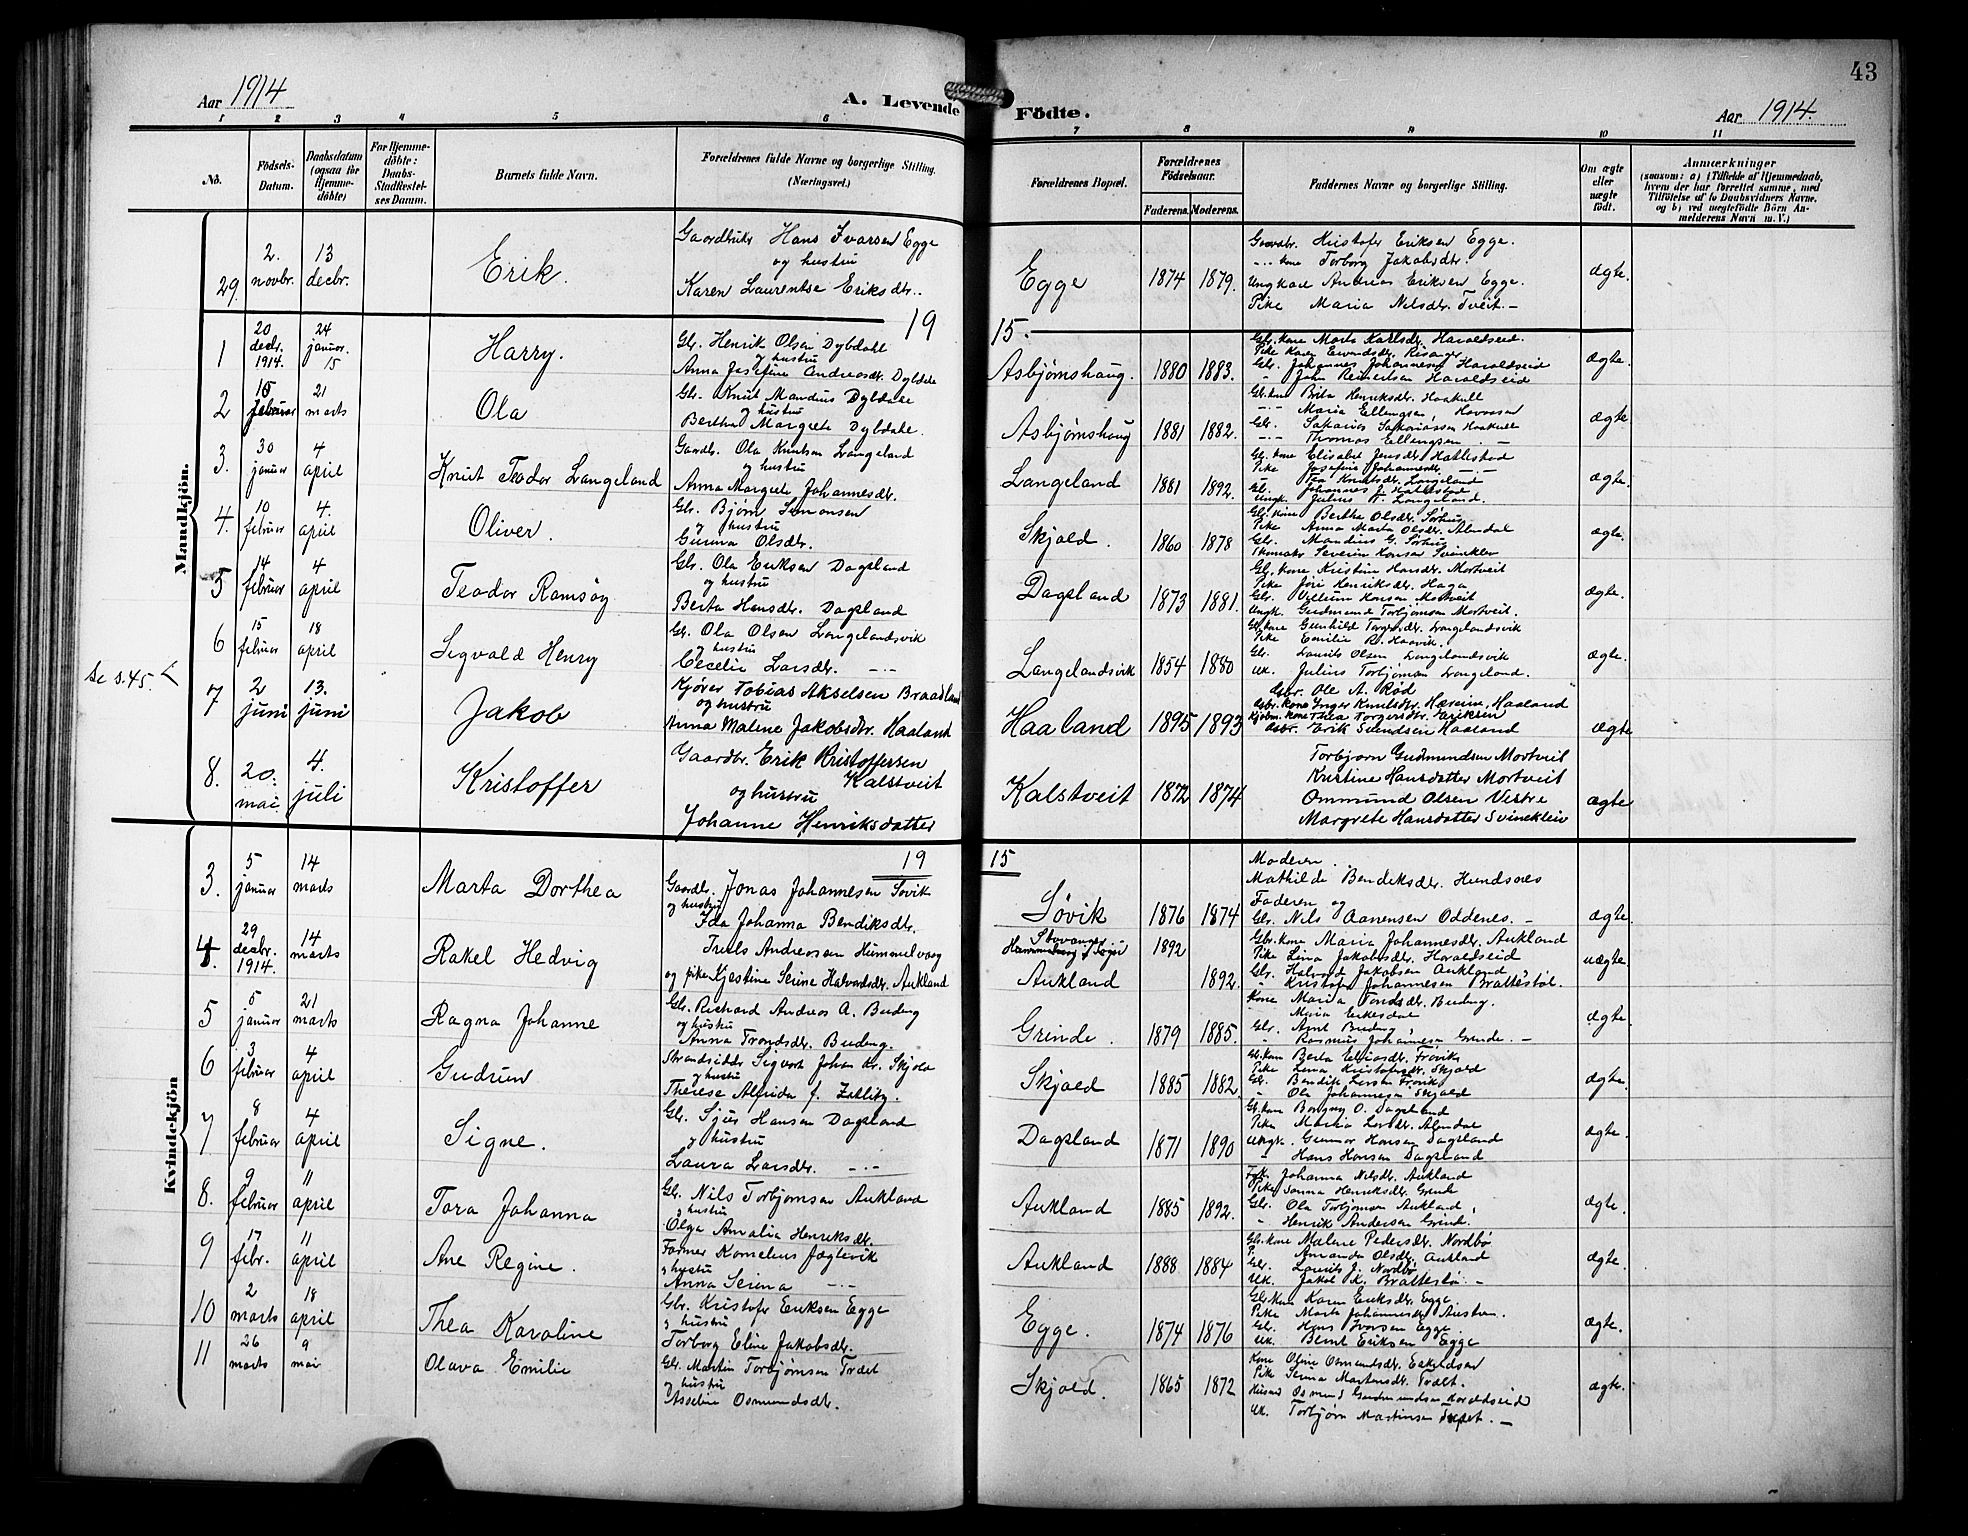 43
Aar 1914
A. Levende Födte.
Aar 1914.
1 2 3 4 5 6 7 8 9 10 11
No.
Födsels-Datum.
Daabsdatum (ogsaa for Hjemme-döbte)
For Hjemme-döbte: Daabs-Stadfestel-ses Datum.
Barnets fulde Navn.
Forældrenes fulde Navne og borgerlige Stilling. (Næringsvei.)
Forældrenes Bopæl.
Forældrenes Födselsaar.
Faderens. Moderens.
Faddernes Navne og borgerlige Stilling.
Om ægte eller uægte födt.
Anmærkninger
(saasom: a) i Tilfælde af Hjemmedaab, hvem der har forrettet samme, med Tilföielse af to Daabsvidners Navne. og b) ved uægtefödte Börn An-melderens Navn m. V.)
Mandkjön.
29. 2. novbr. 13 decbr. Erik.
Hans Ivarsen Egge
og hustru
Karen Laurentse Eriksdtr.
Egge 1874 1879.
Kristofer Eriksen Egge.
kone Torborg Jakobsdtr.
Ungkarl Andreas Eriksen Egge.
Pike Maria Nilsdtr. Tveit. —
ægte.
19 15.
1 20 decbr. 1914. 24 januar. 15 Harry.
Gbr. Henrik Olsen Dybdahl
og hustru
Anna Josefine Andreasdtr. Dybdahl
Asbjørnshaug. 1880 1883.
Gbr. kone Marta Karlsdtr. Haraldseid.
Gbr. Johannes Johannesen Haraldseid
John Reinertsen Haraldseid
ægte.
2 15 februar 21 marts Ola
Gbr. Knut Mandius Dybdahl
og hustru
Bertha Margrete Dybdahl.
Asbjørnshaug 1881 1882.
Gbr. kone Brita Henriksdtr. Haakull
Maria Ellingsen,
Thomas Ellingsen
ægte.
3. 30 januar 4 april Knut Teodor Langeland
Gaardbr. Ola Knutsen Langeland
og hustru
Anna Margrete Johannesdtr.
Langeland 1881 1892.
Gbr. kone Elisabet Jensdtr. Hatlestad
Pike Josefine Johannesdtr.
Knutsdtr. Langeland
Johannes J. Hatlestad
Ungk. Julius K. Langeland.
ægte.
4. 10 februar 4. april Oliver.
Gbr. Bjørn Simonsen
og hustru
Gunna Olsdtr.
Skjold. 1860 1878
Gbr. kone Bertha Olsdtr.
Pike Anna Marta Olsdtr. Alendal
Gbr. Mandius G.
Severin Hansen Svinklev
ægte.
5 14 februar 4 april Teodor Ramsøy
Gbr. Ola Eriksen Dagsland
og hustru
Berta Hansdtr. Dagsland
Dagsland 1873 1881.
Gbr. kone Kristine Hansdtr. Mortveit
Pike Jøri Henriksdtr. Haga
Gbr. Villum Hansen Mortveit
Ungk. Gudmund Torbjørnsen Mortveit.
ægte.
se s. 45.
6 15 februar 18 april Sigvald Henry
Gbr. Ola Olsen Langelandsvik
og hustru
Cecelie Larsdtr. —·—
Langelandsvik 1854 1880
Gbr. kone Gunhild Torgersdtr. Langelandsvik
Pike Emilie R. Haavik.
Gbr. Laurits Olsen Langelandsvik
Uk. Julius Torbjørnsen Langeland.
ægte.
7 2 juni 13. juni Jakob
Kjører Tobias Akselsen Braadland
og hustru
Anna Malene Jakobsdtr. Haaland
Haaland 1895 1893
Gbr. Ole A. Rød
Gbr. kone Inger Knutsdtr. Haaland
kone Thea Torgersdtr. Eriksen
Gbr. Erik Svendsen Haaland
ægte
8. 20. mai 4. juli Kristoffer
Gaardbr. Erik Kristoffersen
Kalstveit
og hustru
Johanne Henriksdatter
Kalstveit 1872 1874
Torbjørn Gudmundsen Mortveit
Kristine Hansdatter Mortveit
Ommund Olsen Vestre
Margrete Hansdatter Svinekleiv
ægte
19 15
Kvindekjön
3. 5 januar 14 marts Marta Dorthea
Gaardbr. Jonas Johannesen Søvik
og hustru
Ida Johanna Bendiksdtr.
Søvik 1876 1874
Moderen.
Mathilde Bendiksdtr. Hundsnes
Faderen og
Gbr. Nils Aanensen Oddenes. —
ægte.
4. 29 decbr. 1914. 14 marts Rakel Hedvig
Truls Andreassen Hummelvaag
og pike Kjestine Serine Halvordsdtr. Aukland
Stavanger
1892
Aukland 1892.
Gbr. kone Maria Johannesdtr. Aukland
Pike Lina Jakobsdtr. Haraldseid
Gbr. Halvord Jakobsen Aukland
" Kristofer Johannesen Brattestøl.
uægte.
5 5 januar 21 marts Ragna Johanne
Gbr. Richard Andreas A. Buding
og hustru
Anna Trondsdtr. Buding.
Grinde. 1879 1885.
Kone Maria Buding.
Maria Eikesdal
Gbr. Arnt Buding
" Rasmus Johannesen Grinde. —
ægte.
6 3 februar 4 april Gudrun
Strandsidder Sigvart Johan Kr. Skjold
og hustru
Therese Alfrida f.
Skjold 1885 1882.
Gbr. kone Berta Eliasdtr. Frøvik
Pike Lina Kristofersdtr. Skjold
Gbr. Bendik Larsen Frøvik
" Ola Johannesen Skjold
ægte.
7 8 februar 4 april Signe.
Gbr. Sjur Hansen Dagsland
og hustru
Laura Larsdtr. —·—
Dagsland 1871 1890
Gbr. kone Borgny O. Dagsland
Pike Marta Larsdtr. Alendal
Ungk. Gunnar Hansen Dagsland
" Hans Hansen Dagsland
ægte.
8. 9 februar 11 april Tora Johanna
Gbr. Nils Torbjørnsen Aukland
og hustru
Olga Amalia Henriksdtr.
Aukland 1885 1892.
Johanna Nilsdtr. Aukland
Pike Sanna Henriksdtr. Grinde
Gbr. Ola Torbjørnsen Aukland,
" Henrik Andersen Grinde.
ægte.
9 17 febr. 11 april Ane Regine.
Farmer Kornelius Fæglevik
og hustru
Anna Serina —·—
Aukland 1888 1884
Gbr. kone Malene Pedersdtr. Nordbø
P. Amanda Olsdtr. Aukland
Gbr. Laurits J. Nordbø
Uk. Jakob K. Brattestø. —
ægte.
10 2 marts 18 april Thea Karoline
Gbr. Kristofer Eriksen Egge
og hustru
Torborg Eline Jakobsdtr.
Egge. 1874 1876
Gbr. kone Karen Eriksdtr. Egge.
Pike Marta Johannesdtr.
Gbr. Hans Ivarsen Egge
Uk. Bernt Eriksen Egge
ægte.
11 26 marts 9 mai Olava Emilie
Gbr. Martin Torbjørnsen Trædt
og hustru
Asseline Osmundsdtr.
Skjold. 1865 1872
Kone Oline Osmundsdtr. Eskildsen
Pike Serina Martinsdtr. Trædt.
Husmd. Osmund Gundersen Haraldseid
Uk. Torbjørn Martinsen Trædt. —
ægte.